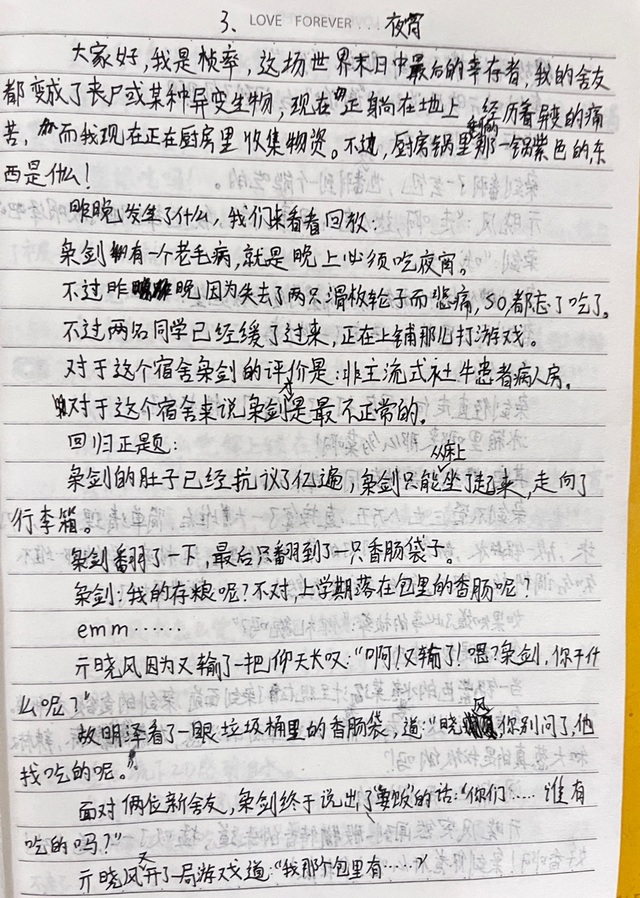 3、LOVE FOREVER... 夜宵
大家好,我是桢率,这场世界末日中最后的幸存者,我的舍友
都变成了丧尸或某种异变生物,现在正躺在地上,经历着异变的痛
苦,而我现在正在厨房里收集物资。不过,厨房锅里那一锅紫色的东
西是什么!
昨晚发生了什么,我们来看看回放:
枭剑有一个老毛病,就是晚上必须吃夜宵。
不过昨晚因为失去了两只滑板轮子而悲痛,so都忘了吃了。
不过两名同学已经缓了过来,正在上铺那儿打游戏。
对于这个宿舍枭剑的评价是:非主流式社牛患者病人房。
对于这个宿舍来说枭剑是最不正常的。
回归正题:
枭剑的肚子已经抗议了亿遍,枭剑只能从床上坐了起来,走向了
行李箱。
枭剑翻了一下,最后只翻到了一只香肠袋子。
枭剑:我的存粮呢?不对,上学期落在包里的香肠呢?
emm……
亓晓风因为又输了一把仰天长叹:“啊!又输了!嗯?枭剑,你干什
么呢?”
故明泽看了一眼垃圾桶里的香肠袋,道:“晓风,你别问了,他
找吃的呢。”
面对俩位新舍友,枭剑终于说出了“要饭”的话:“你们……谁有
吃的吗?”
亓晓风又开了一局游戏道:“我那个包里有……”